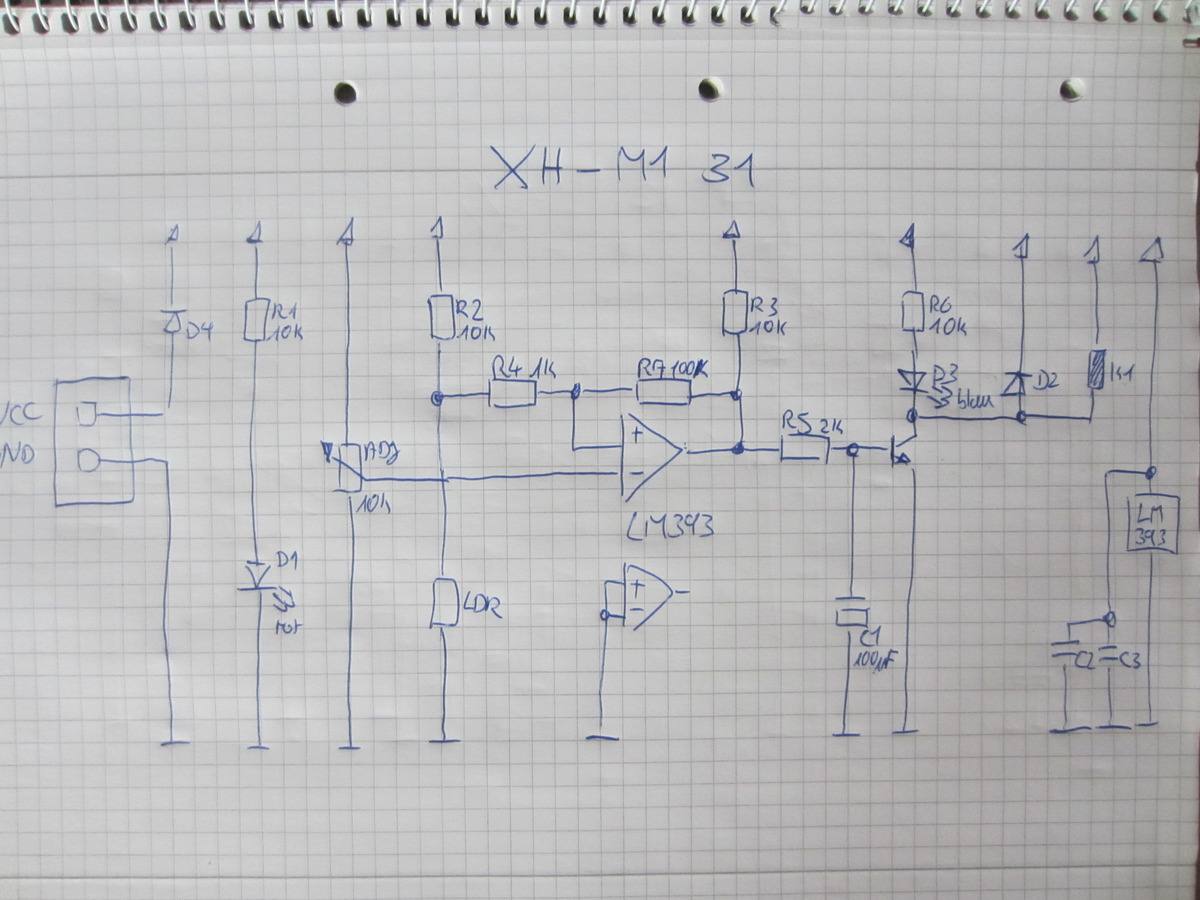 XH-M1 31
D4
R1
10K
R2
10K
R3
10K
R6
10K
R4 1K
R7 100K
D3
blau
D2
K1
VCC
GND
ADJ
10k
+
-
R5 2K
LM393
LM
393
D1
rot
LDR
+
-
C1
100µF
C2
C3